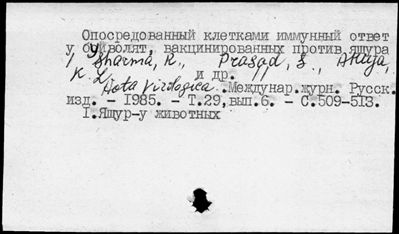 Опосредованный клетками иммунный ответ
у буйволят, вакцинированных против ящура
/ Sharma, R., Prasad, S., Ahuja,
K. L. и др. //
Acta virologica. Междунар.журн. Русск.
изд. - 1985. - Т.29,вып.6. - С.509-513.
I.Ящур-у животных